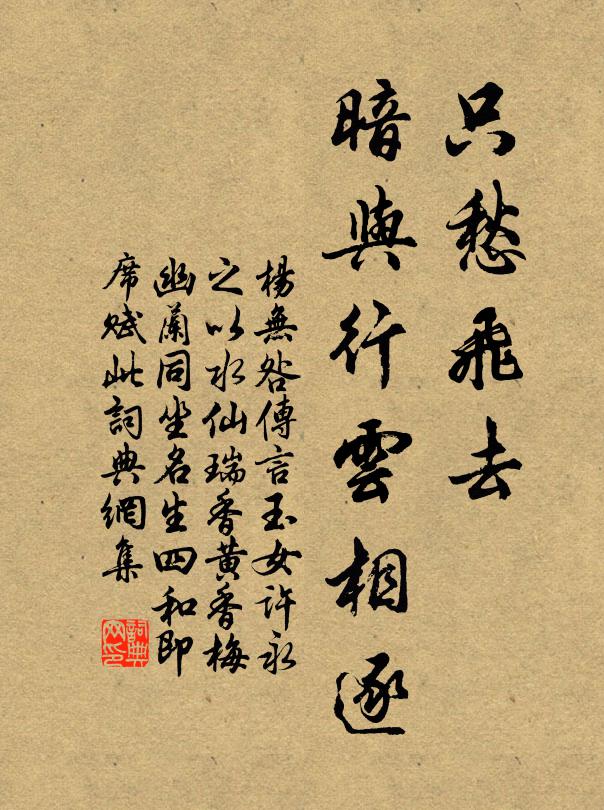 只愁飛去
暗與行雲相逐
楊無咎傳言玉女許永
之以水仙瑞香黃香梅
幽蘭同坐名生四和即
席賦此詞典網集
詞典
網印